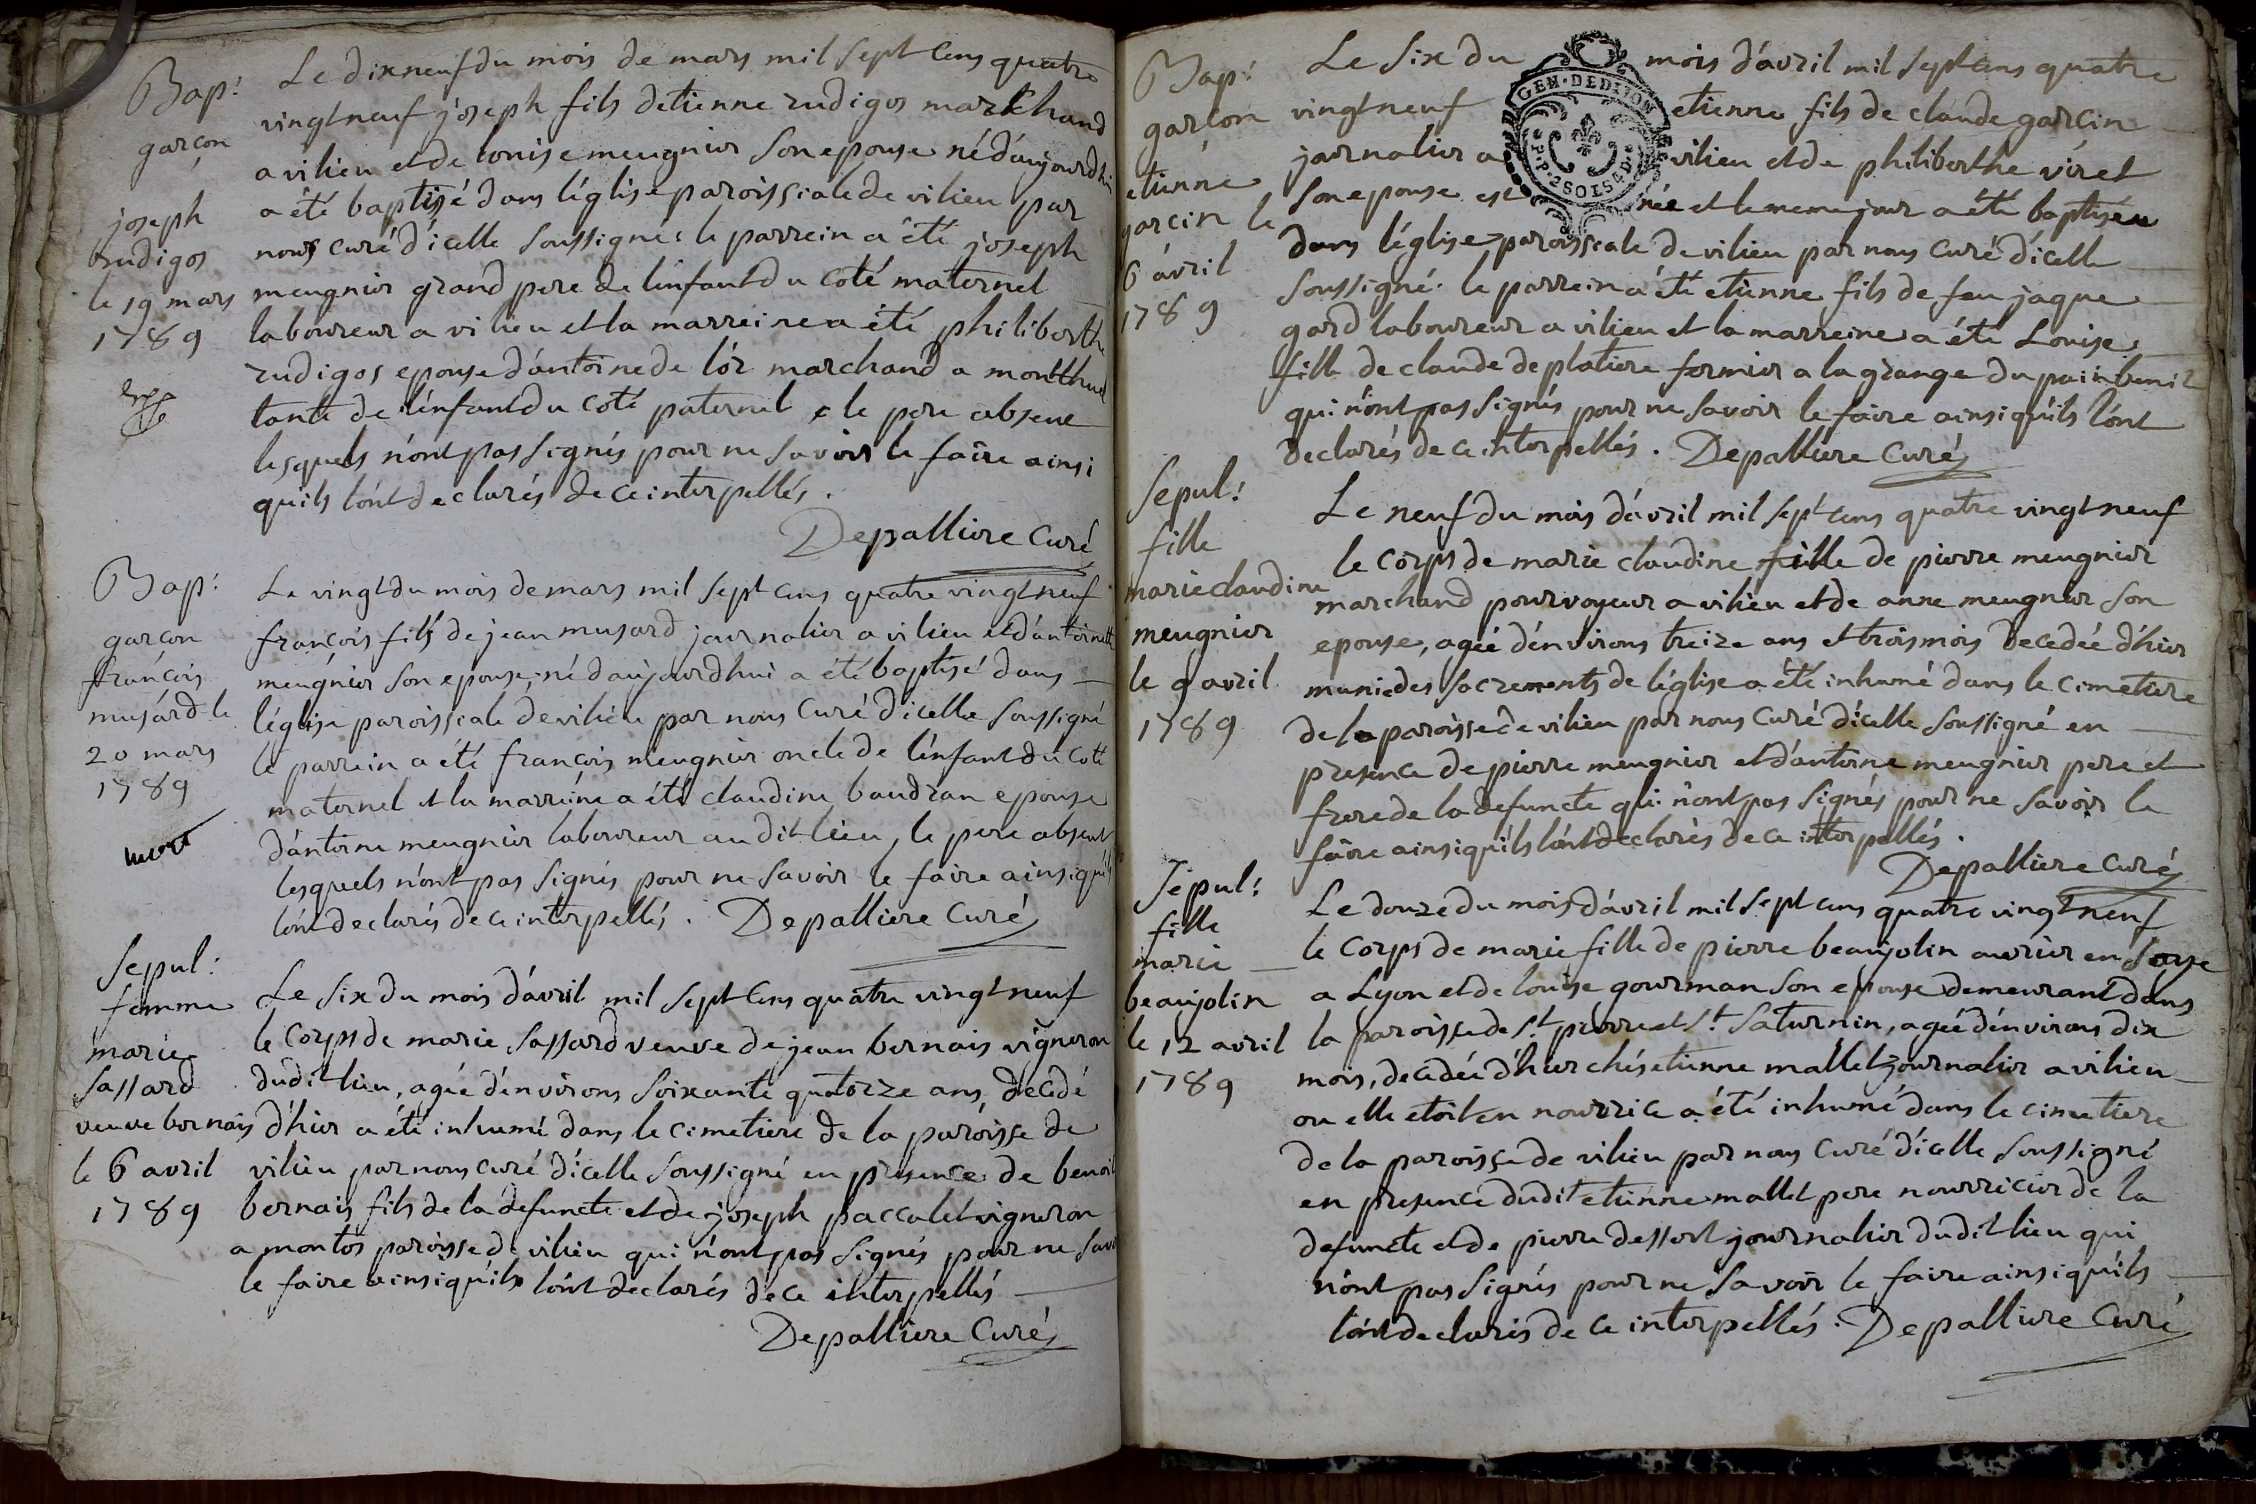 Bap:
garçon
joseph
rudigos
le 19 mars
1789
Le dixneuf du mois de mars mil sept cens quatre
vingt neuf joseph fils detienne rudigos marchand
a vilieu et de louise meugnier son epouse né d'aujourdhui
a été baptisé dans l'église paroissiale de vilieu par
nous curé d'icelle soussigné: le parrein a été joseph
meugnier grand pere de l'infant du coté maternel
laboureur a vilieu et la marreine a été philiberthe
rudigos epouse d'antoine de l'or marchand a monthuel
tante de l'enfant du coté paternel le pere absent
lesquels n'ont pas signés pour ne savoir le faire ainsi
qu'ils l'ont declarés de ce interpellés.
Depalliere curé
Bap:
garçon
françois
musard le
20 mars
1789
mort
Le vingt du mois de mars mil sept cens quatre vingt neuf
françois fils de jean musard journalier a vilieu et d'antoinette
meugnier son epouse, né d'aujourdhui a été baptisé dans
l'église paroissiale de vilieu par nous curé d'icelle soussigné
le parrein a été françois meugnier oncle de l'enfant du coté
maternel et la marreine a été claudine baudran epouse
d'antoine meugnier laboureur au dit lieu, le pere absent
lesquels n'ont pas signés pour ne savoir le faire ainsi qu'ils
l'ont declarés de ce interpellés. Depalliere curé
Sepul:
femme
marie
sassard
veuve bernais
le 6 avril
1789
Le six du mois d'avril mil sept cens quatre vingt neuf
le corps de marie sassard veuve de jean bernais vigneron
dudit lieu, agée d'environs soixante quatorze ans, decedé
d'hier a été inhumé dans le cimetiere de la paroisse de
vilieu par nous curé d'icelle soussigné en presence de benoit
bernais fils de la defuncte et de joseph paccalet vigneron
a montos paroisse de vilieu qui n'ont pas signés pour ne savoir
le faire ainsi qu'ils l'ont declarés de ce interpellés
Depalliere curé
GEN. DE DIJON
Bap:
garçon
etienne
garcin le
6 avril
1789
Le six du mois d'avril mil sept cens quatre
vingt neuf etienne fils de claude garcin
journalier a vilieu et de philiberthe viret
son epouse est née et le meme jour a été baptisée
dans l'église paroissiale de vilieu par nous curé d'icelle
soussigné. le parrein a été etienne fils de feu jaque
gard laboureur a vilieu et la marreine a été Louise
fille de claude de platiere fermier a la grange du pain benit
qui n'ont pas signés pour ne savoir le faire ainsi qu'ils l'ont
declarés de ce interpellés. Depalliere curé
Sepul:
fille
marie claudine
meugnier
le 9 avril
1789
Le neuf du mois d'avril mil sept cens quatre vingt neuf
le corps de marie claudine fille de pierre meugnier
marchand pourvoyeur a vilieu et de anne meugnier son
epouse, agée d'environs treize ans et trois mois decedée d'hier
munie des sacrements de l'église a été inhumé dans le cimetiere
de la paroisse de vilieu par nous curé d'icelle soussigné en
presence de pierre meugnier et d'antoine meugnier pere et
frere de la defuncte qui n'ont pas signés pour ne savoir le
faire ainsi qu'ils l'ont declarés de ce interpellés.
Depalliere curé
Sepul:
fille
marie
beaujolin
le 12 avril
1789
Le douze du mois d'avril mil sept cens quatre vingt neuf
le corps de marie fille de pierre beaujolin ouvrier en soye
a Lyon et de louise gourman son epouse demeurant dans
la paroisse de St. pierre et St. Saturnin, agée d'environs dix
mois, decedée d'hier chés etienne mallet journalier a vilieu
ou elle etoit en nourrice a été inhumé dans le cimetiere
de la paroisse de vilieu par nous curé d'icelle soussigné
en presence dudit etienne mallet pere nourricier de la
defuncte et de pierre dessert journalier dudit lieu qui
n'ont pas signés pour ne savoir le faire ainsi qu'ils
l'ont declarés de ce interpellés. Depalliere curé